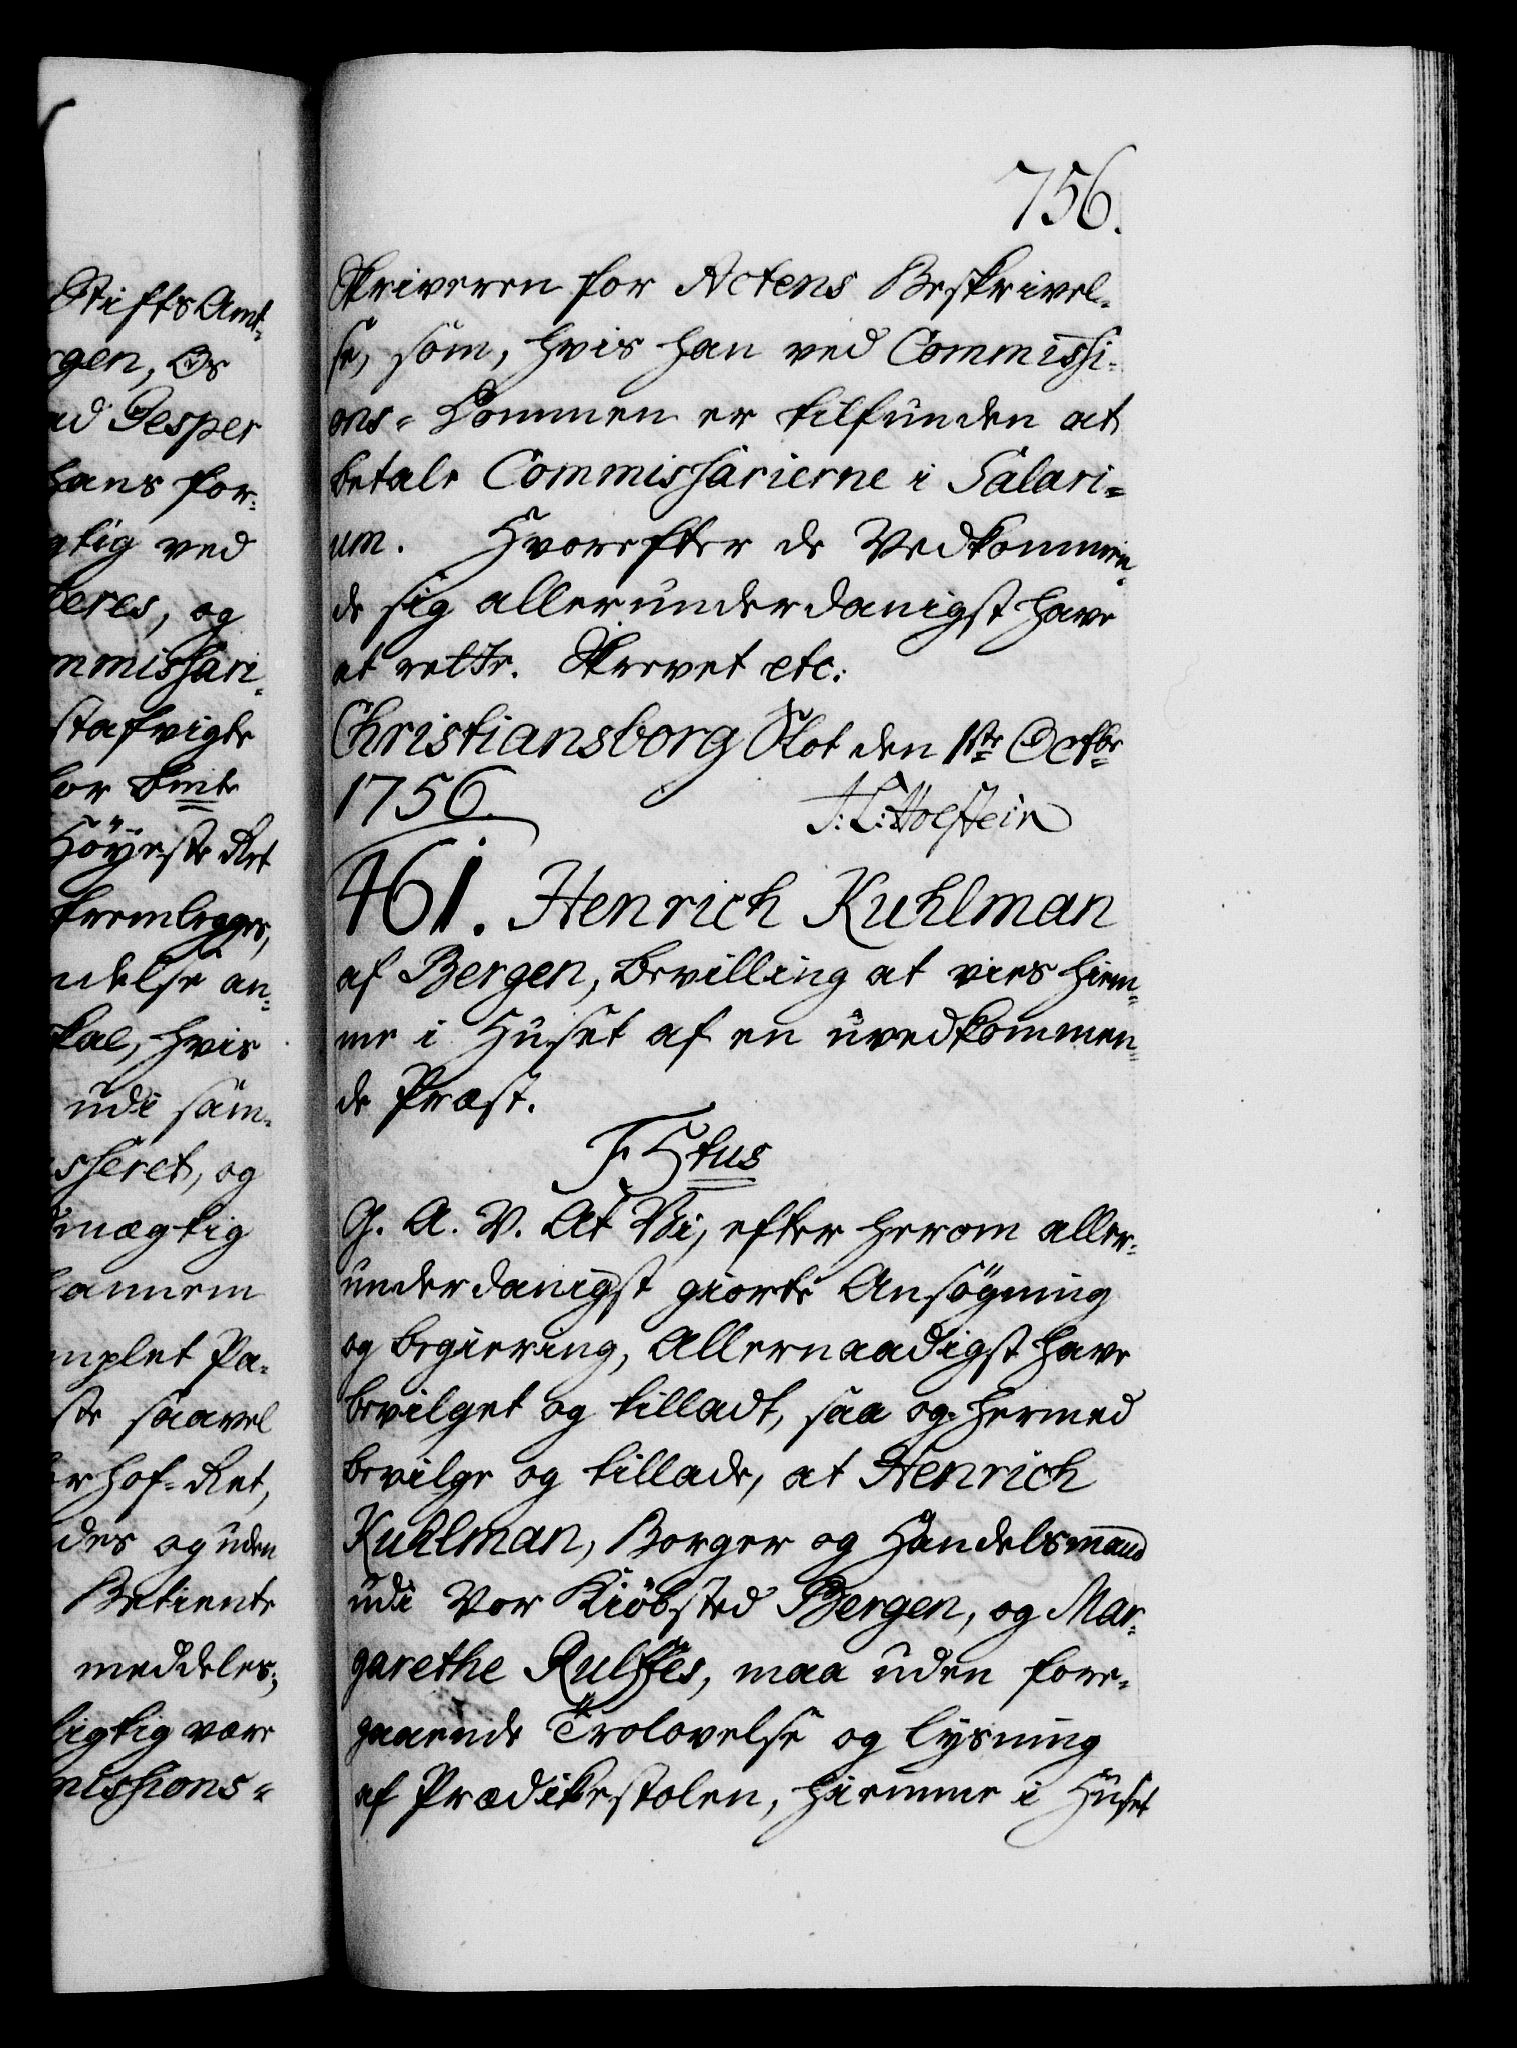 Stifts Amt-
rgen, Os
ad Jesper
hans for-
gtig ved
teres, og
mmissari-
stafvigte
for bmte
Höyeste Ret
fremlegges,
ndelse an-
skal, hvis
udi sam-
isseret, og
dmægtig
hannem
mplet Pa-
ste saavel
er Hof-Ret,
des og uden
Betiente
meddeles,
ligtig være
missions-
756.
Skriveren for Actens Beskrivel-
se, som, hvis han ved Commissi-
ons-Dommen er tilfunden at
betale Commissarierne i Salari-
um. Hvorefter de Vedkommen-
de sig allerunderdanigst have
at rette. Skrevet etc:
Christiansborg Slot den 1ste Octbr
1756.
J: L: Holstein
461. Henrich Kuhlman
af Bergen, bevilling at vies hiem-
me i Huset af en uvedkommen-
de Præst.
F. 5tus
G. A. V. At Vi, efter herom aller-
underdanigst giorte Ansögning
og begiering, Allernaadigst have
bevilget og tilladt, saa og hermed
bevilge og tillade, at Henrich
Kuhlman, Borger og Handelsmand
udi Vor Kiöbsted Bergen, og Mar-
garethe Rulffes, maa uden fore-
gaaende Trolovelse og lysning
af Prædikestolen, hiemme i Huset